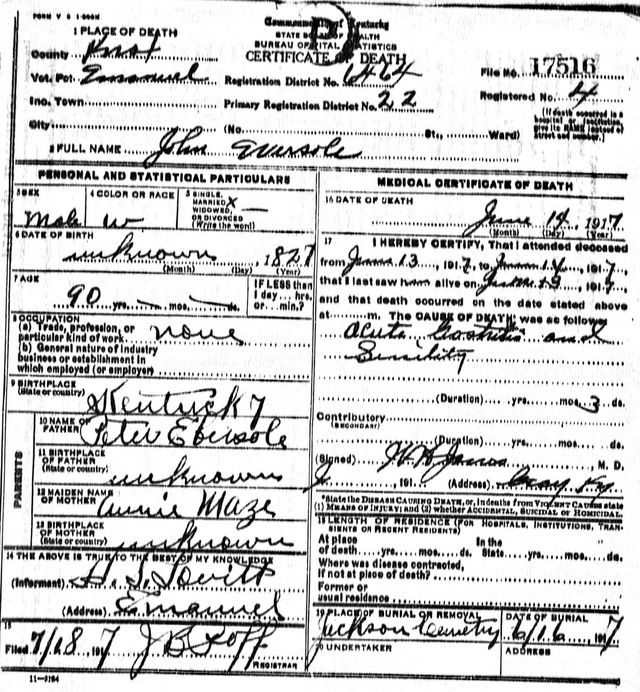 FORM V S 1-500M
Commonwealth of Kentucky
STATE BOARD OF HEALTH
BUREAU OF VITAL STATISTICS
CERTIFICATE OF DEATH
1 PLACE OF DEATH
County Knox
Vot. Pct. Emanuel Registration District No. 6464 File No. 17516
Inc. Town Primary Registration District No. 22 Registered No. 4
City (No. St., Ward) [If death occurred in a hospital or institution, give its NAME instead of street and number.]
2 FULL NAME John Eversole
PERSONAL AND STATISTICAL PARTICULARS
3 SEX
Male
4 COLOR OR RACE
W
5 SINGLE, MARRIED X WIDOWED, OR DIVORCED (Write the word)
6 DATE OF BIRTH
unknown, 1827
(Month) (Day) (Year)
7 AGE
90 yrs. — mos. — ds.
IF LESS than 1 day... hrs. or... min.?
8 OCCUPATION
(a) Trade, profession, or particular kind of work none
(b) General nature of industry business or establishment in which employed (or employer)
9 BIRTHPLACE
(State or country)
Kentucky
PARENTS
10 NAME OF FATHER
Peter Ebersole
11 BIRTHPLACE OF FATHER
(State or country)
unknown
12 MAIDEN NAME OF MOTHER
Annie Maze
13 BIRTHPLACE OF MOTHER
(State or country)
unknown
14 THE ABOVE IS TRUE TO THE BEST OF MY KNOWLEDGE
(Informant)
(Address) Emanuel
15
Filed 7/18 1917
REGISTRAR
11-3194
MEDICAL CERTIFICATE OF DEATH
16 DATE OF DEATH
June 14, 1917
(Month) (Day) (Year)
17 I HEREBY CERTIFY, That I attended deceased
from June 13, 1917, to June 14, 1917,
that I last saw him alive on 1917,
and that death occurred on the date stated above
at m. The CAUSE OF DEATH was as follows
Acute Gastritis and
Sinility
(Duration) yrs. mos. 3 ds.
Contributory
(SECONDARY)
(Duration) yrs. mos. ds.
(Signed) M. D.
191 (Address) Gray Ky
*State the DISEASE CAUSING DEATH, or, in deaths from VIOLENT CAUSES state (1) MEANS OF INJURY; and (2) whether ACCIDENTAL, SUICIDAL OR HOMICIDAL.
18 LENGTH OF RESIDENCE (FOR HOSPITALS, INSTITUTIONS, TRANSIENTS OR RECENT RESIDENTS)
At place of death yrs. mos. ds. In the State yrs. mos. ds.
Where was disease contracted, if not at place of death?
Former or usual residence
19 PLACE OF BURIAL OR REMOVAL
Jackson Cemetry
DATE OF BURIAL
6/16 1917
20 UNDERTAKER
ADDRESS